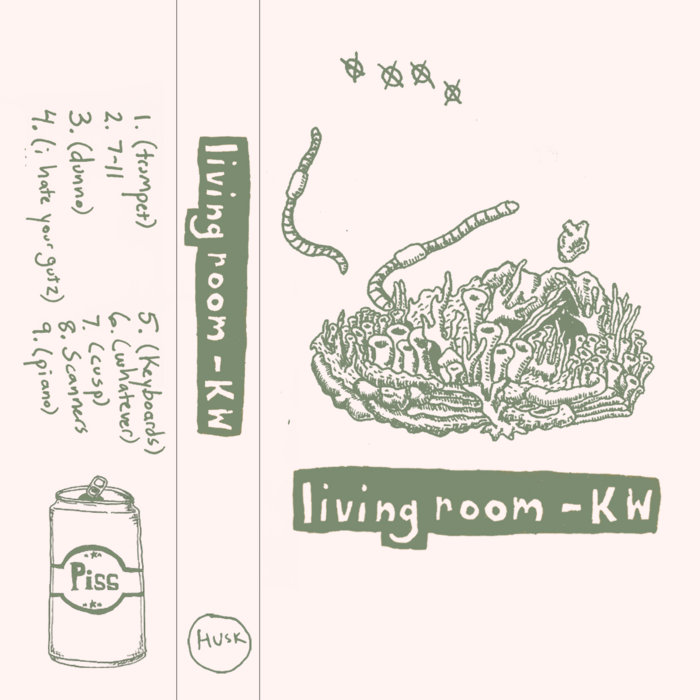 1. (trumpet)
2. 7-11
3. (dunno)
4. (i hate your gutz)
5. (Keyboards)
6. (whatever)
7 (cusp)
8. Scanners
9. (piano)
Piss
living room - KW
HUSK
living room - KW